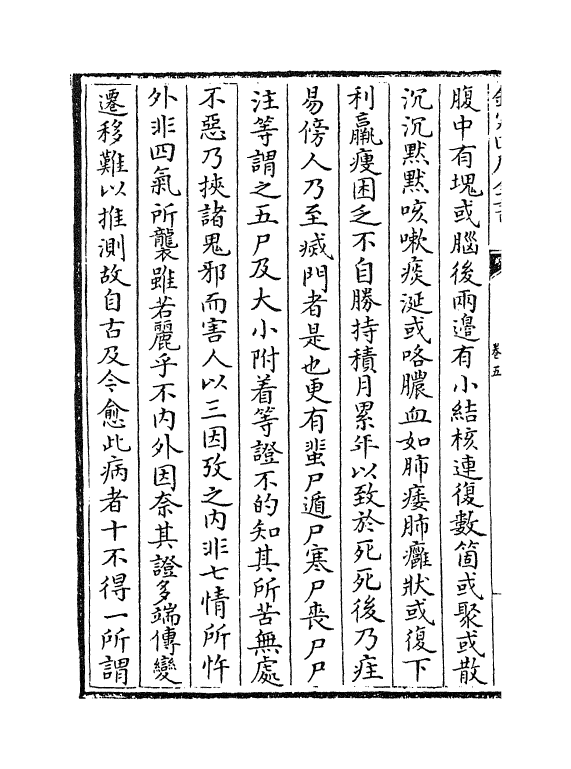 欽定四庫全書
卷五
腹中有塊或腦後兩邉有小結核連復數箇或聚或散
沉沉黙黙咳嗽痰涎或咯膿血如肺痿肺癰狀或復下
利羸瘦困乏不自勝持積月累年以致於死死後乃疰
易傍人乃至㓕門者是也更有蜚尸遁尸寒尸喪尸尸
注等謂之五尸及大小附着等證不的知其所苦無處
不惡乃挾諸鬼邪而害人以三因攷之内非七情所忤
外非四氣所襲雖若麗乎不内外因奈其證多端傳變
遷移難以推測故自古及今愈此病者十不得一所謂